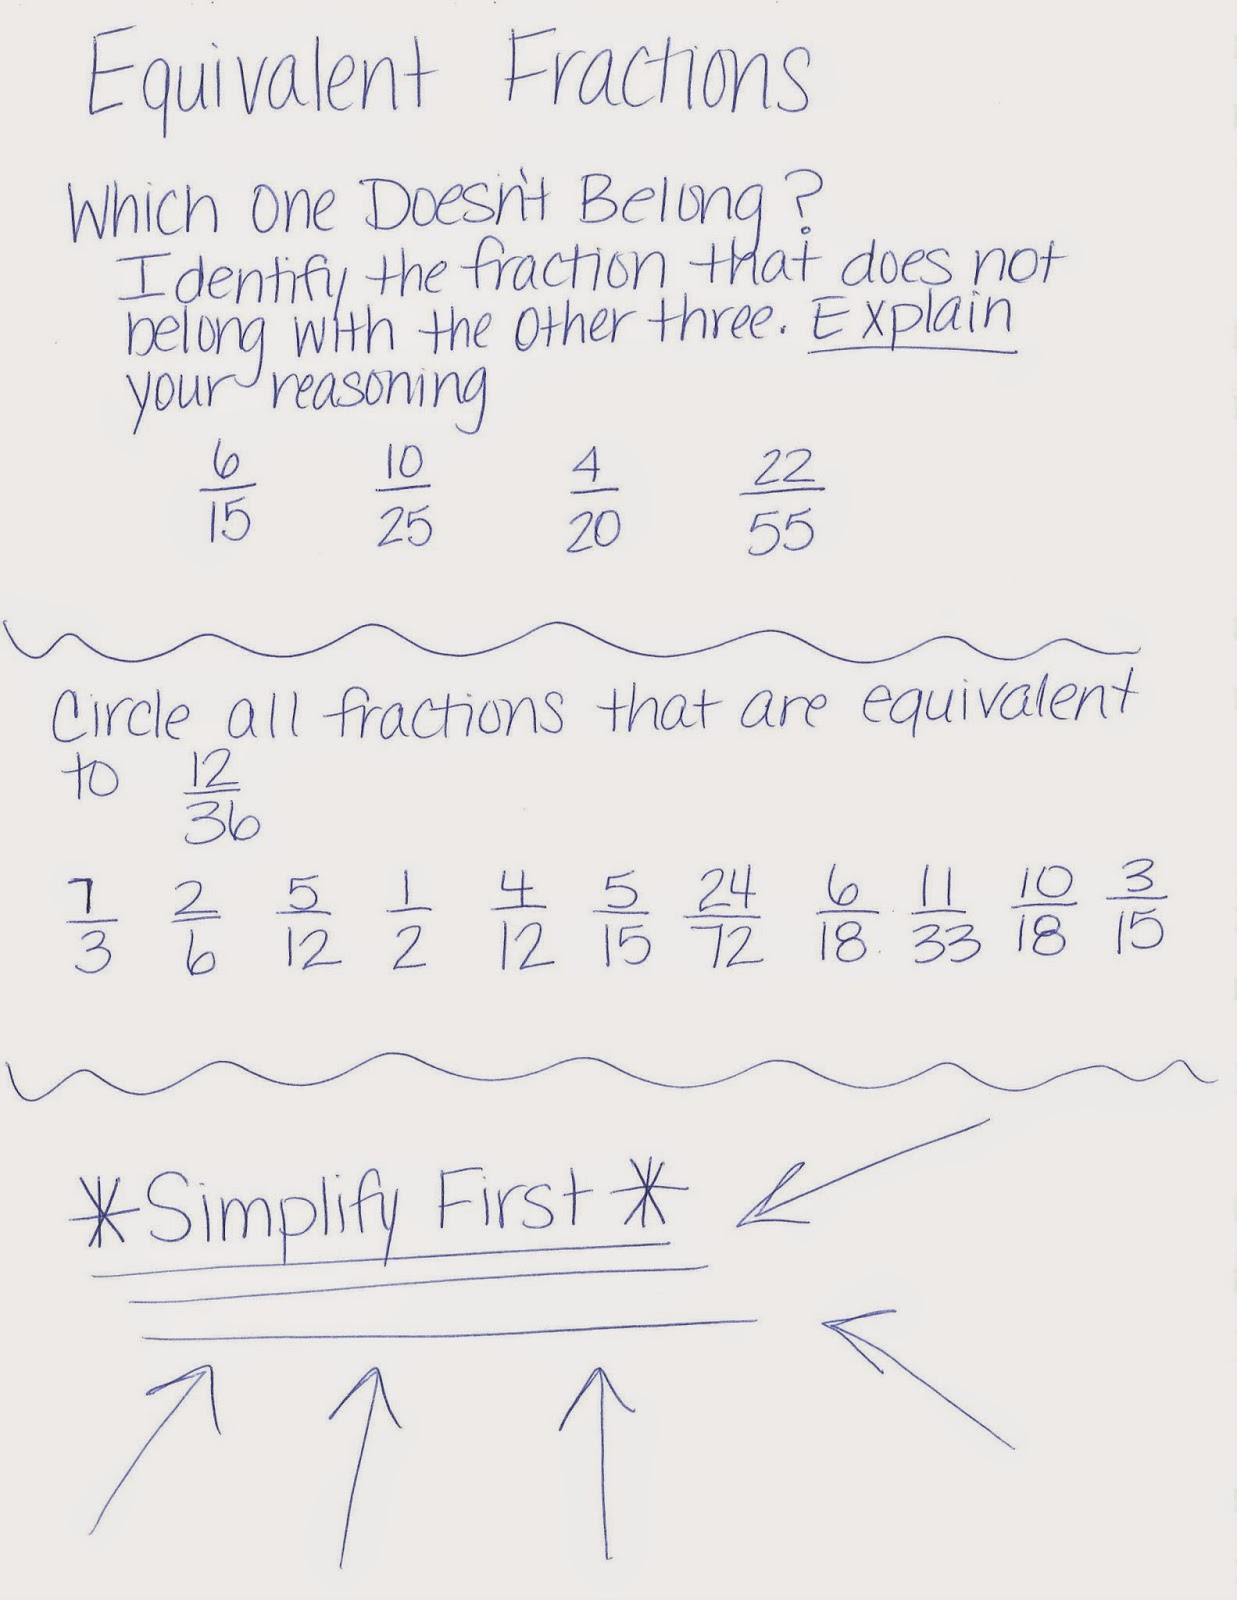 Equivalent Fractions
Which One Doesn't Belong?
Identify the fraction that does not
belong with the other three. Explain
your reasoning
6/15 10/25 4/20 22/55
Circle all fractions that are equivalent
to 12/36
1/3 2/6 5/12 1/2 4/12 5/15 24/72 6/18 11/33 10/18 3/15
*Simplify First*